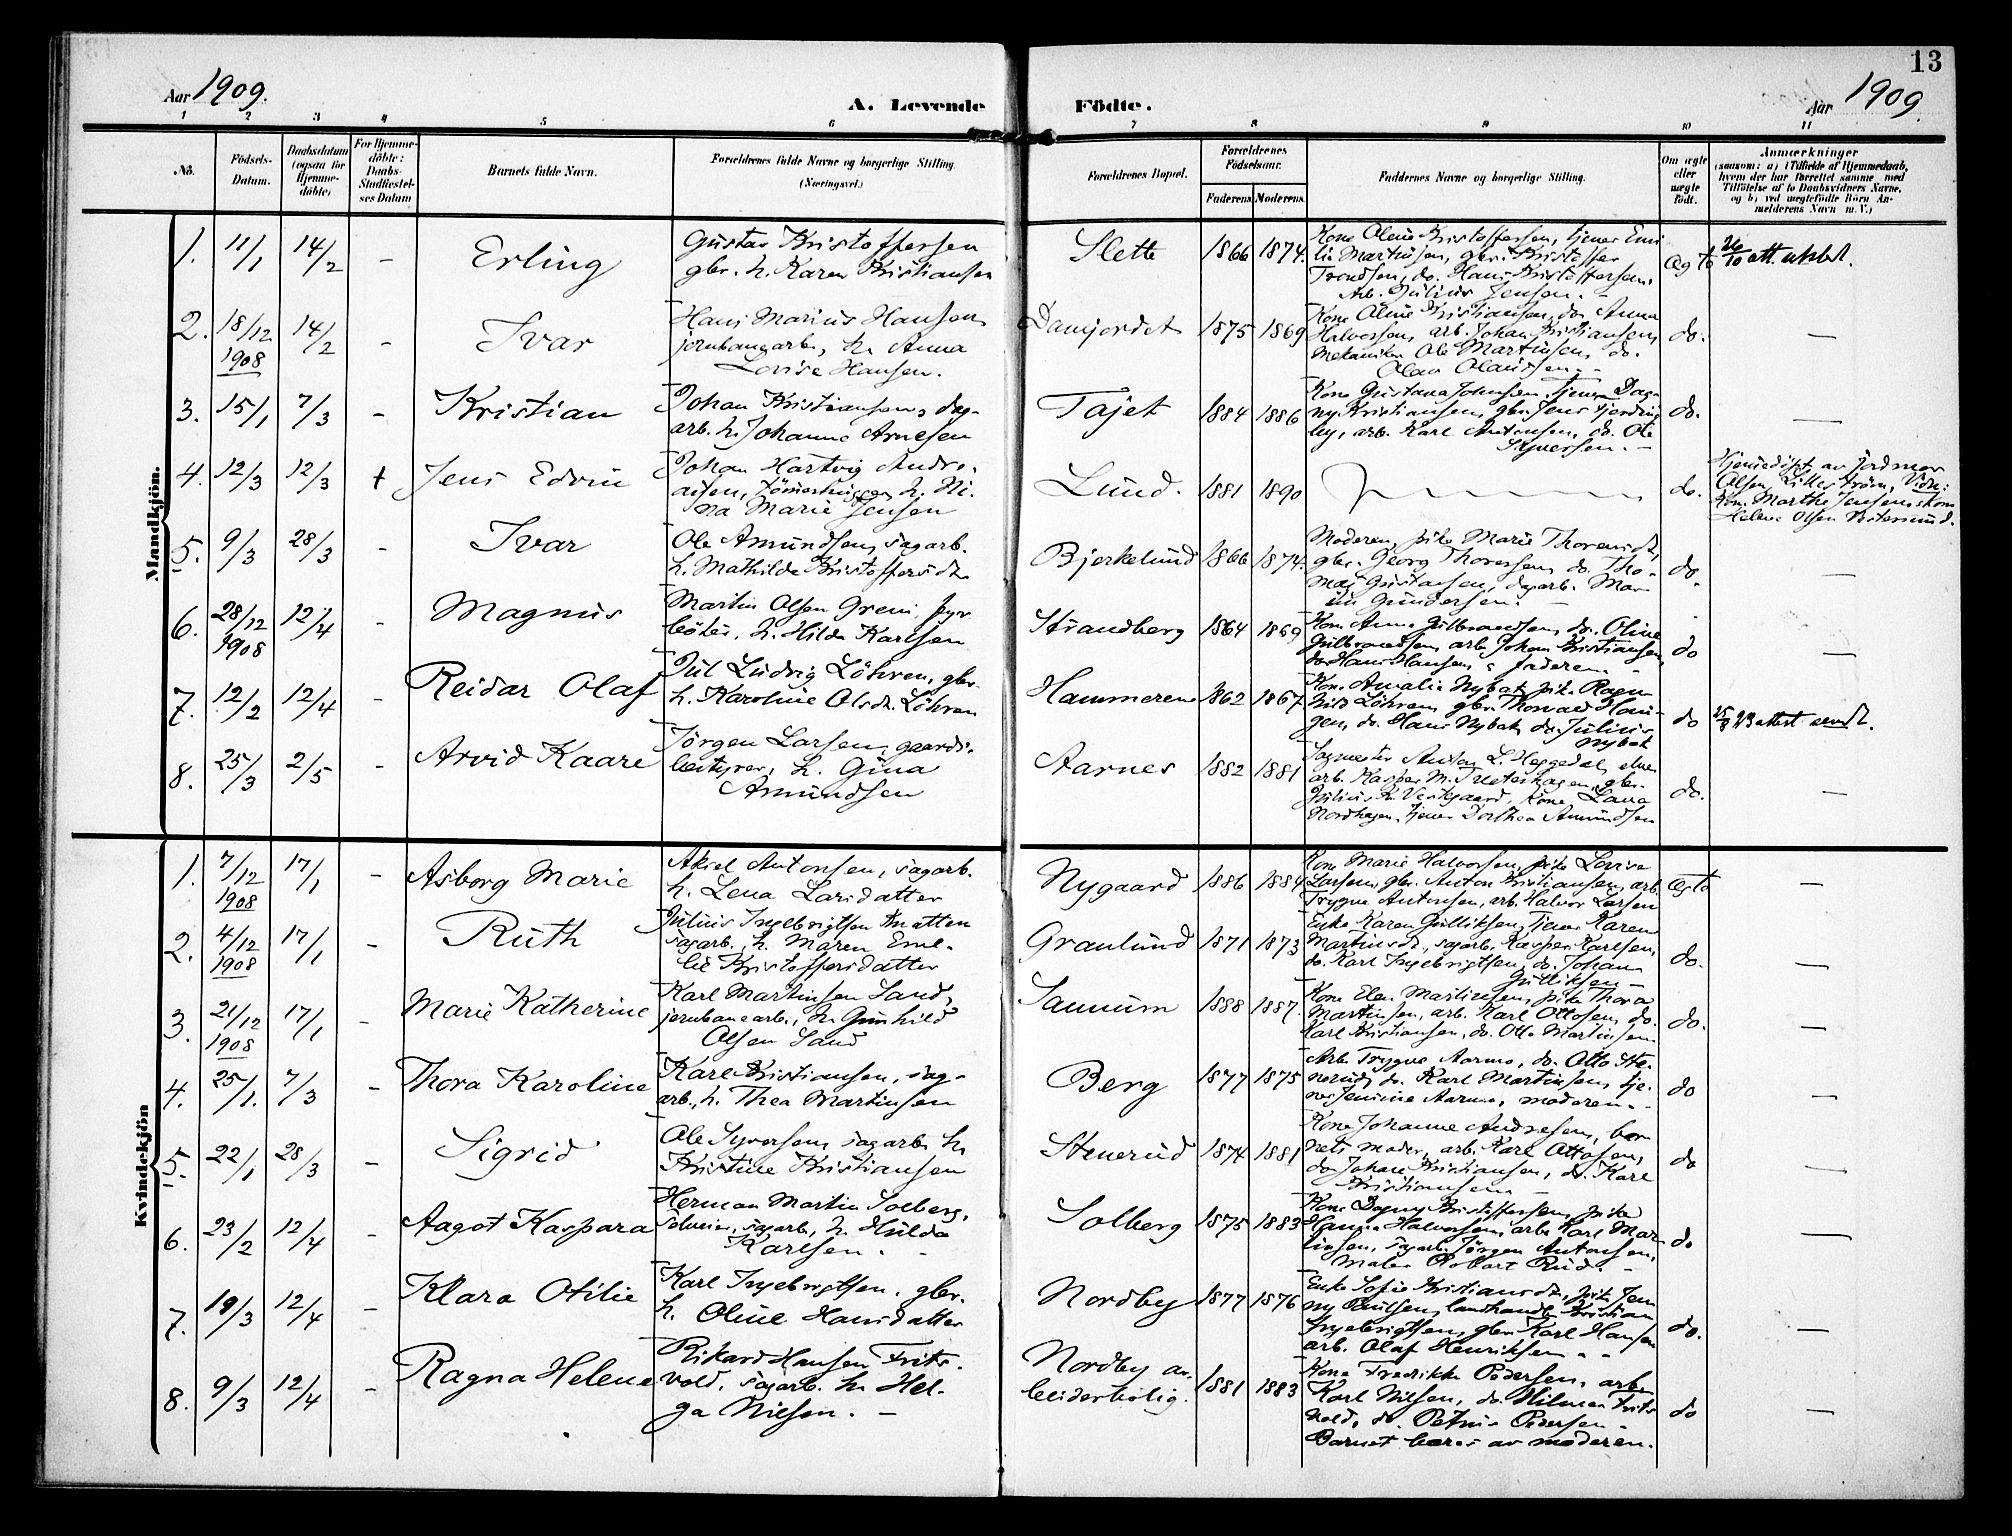 13
Aar 1909.
A. Levende Födte.
Aar 1909.
1 2 3 4 5 6 7 8 9 10 11
No.
Födsels-Datum.
Daabsdatum (ogsaa for Hjemme-döbte)
For Hjemme-döbte: Daabs-Stadfæstel-ses Datum
Barnets fulde Navn.
Forældrenes fulde Navne og borgerlige Stilling. (Næringsvei.)
Forældrenes Bopæl.
Forældrenes Födselsaar.
Faderens Moderens
Faddernes Navne og borgerlige Stilling.
Om ægte eller uægte födt.
Anmærkninger
(saasom: a) i Tilfælde af Hjemmedaab, hvem der har forrettet samme med Tilföielse af to Daabsvidners Navne, og b) ved uægtefödte Börn An-melderens Navn m. V.)
Mandkjön.
1. 11/1 14/2 - Erling
Gustav Kristoffersen
gbr. h. Karen Kristiansen
Slette 1866 1874.
Kone Oline Kristoffersen, tjener Emi
lie Martinsen, gbr. Kristoffer
Trondsen, do. Hans Kristoffersen,
Arb. Julius Jensen. -
Ægte
26/10 att. utstedt.
2. 18/12 1908 14/2 - Ivar
Hans Marius Hansen
jernbanearb., h. Anna
Lovise Hansen.
Damjordet 1875 1869
Kone Oline Kristiansen, do Anna
Halvorsen, arb. Johan Kristiansen,
Mekaniker Ole Martinsen, do.
Olav Olaussen. -
do. -
3. 15/1 7/3 - Kristian
Johan Kristiansen, dag-
arb. h. Johanne Arnesen
Tajet 1884 1886
Kone Gustava Johnsen, tjener Dag-
ny Kristiansen, gbr. Jens Gjerding
by, arb. Karl Antonsen, do. Ole
Syversen. -
do. -
4. 12/3 12/3 + Jens Edvin
Johan Hartvig Andre-
asen, tömerhugger h. Ni-
na Marie Jensen
Lund. 1881 1890
do.
Hjemedöpt av jordmor
Olsen, Lilleström, Vidn:
Kone Marthe Jensen &
Helene Olsen
5. 9/3 28/3 - Ivar
Ole Amundsen, sagarb.
h. Mathilde Kristoffersdt.
Bjerkelund 1866 1874.
Moderen, pike Marie Thoresdt.,
gbr. Georg Thoresen, do. Tho-
mas Gustavsen, dagarb. Mar-
tin Gundersen. -
do. -
6. 28/12 1908 12/4 - Magnus
Martin Olsen Greni fyr
böter, h. Hilda Karlsen
Strandberg 1864 1869
Kone Anna Gulbrandsen, do. Oline
Gulbrandsen arb. Johan Kristiansen,
do Hans Hansen, & faderen -
do -
7. 12/2 12/4 - Reidar Olaf
Jul Ludvig Löhren, gbr.
h. Karoline Olsdt. Löhren
Hammeren 1862 1867
Kone Amalie Nybak, pike Ragn-
hild Löhren, gbr. Thorvald Hau-
gen, do. Hans Nybak, do. Julius
Nybak
do
15/8 23 attest sendt.
8. 25/3 2/5 - Arvid Kaare
Jörgen Larsen, gaards-
bestyrer, h. Gina
Amundsen
Aarnes 1882 1881
Sagmester Anton L. Heggedal, elve
arb. Kasper M. Tretterhagen, gbr.
Julius K. Vestgaard, Kone Laura
Nordhagen, tjener Dorthea Amundsen
do. -
Kvindekjön
1. 7/12 1908 17/1 - Asborg Marie
Aksel Antonsen, sagarb.
h. Lena Larsdatter
Nygaard 1886 1884
Kone Marie Halvorsen, pike Lovise
Larsen, gbr. Anton Kristiansen, arb.
Trygve Antonsen, arb. Halvor Larsen
Ægte -
2. 4/12 1908 17/1 - Ruth
Julius Ingebrigtsen Knatten
sagarb., h. Maren Eme-
lie Kristoffersdatter
Granlund 1871 1873
Enke Karen Gulliksen, tjener Karen
Martinsdt., sagarb. Kasper Karlsen,
do. Karl Ingebrigtsen, do. Johan
Gulliksen -
do. -
3. 21/12 1908 17/1 - Marie Katherine
Karl Martinsen Sand,
jernbanearb., h. Gunhild
Olsen Sand
Sannum 1888 1887.
Kone Elen Martinsen, pike Thora
Martinsen, arb. Karl Ottosen, do.
Karl Kristiansen, do. Otto Martinsen
do. -
4. 25/1. 7/3 - Thora Karoline
Karl Kristiansen, sag-
arb., h. Thea Martinsen
Berg 1877 1875
Arb. Trygve Aarmo, do. Otto Ste-
nerud, do. Karl Martinsen, tje-
ner Jenine Aarmo, moderen. -
do -
5. 22/1 28/3 - Sigrid
Ole Syversen, sagarb. h.
Kristine Kristiansen
Stenerud 1874 1881
Kone Johanne Andresen, bar-
nets moder, arb. Karl Ottosen,
do Johan Kristiansen, do. Karl
Kristiansen -
do -
6. 23/2 12/4 - Aagot Kaspara
Herman Martin Solberg,
sagarb., h. Hulda
Karlsen. -
Solberg 1875 1883
Kone Dagny Kristoffersen, pike
Hanna Halvorsen, arb. Karl Mar-
tinsen, sagarb. Jörgen Antonsen,
Maler Robart Rud. -
do -
7. 19/3 12/4 - Klara Otilie
Karl Ingebrigtsen, gbr.
h. Oline Hansdatter
Nordby 1877 1876
Enke Sofie Kristiansdt., pike Jen
ny Paulsen, landhandler Kristian
Ingebrigtsen, gbr. Karl Hansen
arb. Olaf Henriksen - -
do. -
8. 9/3 12/4 - Ragna Helene
Rikard Hansen Frits-
vold, sagarb. h. Hel-
ga Nilsen. -
Nordby ar-
beiderbolig. 1881 1883
Kone Fredrikke Pedersen, arb.
Karl Nilsen, do. Hilmar Frits
vold, do. Petrus Pedersen -
Barnet bæres av moderen.
do -